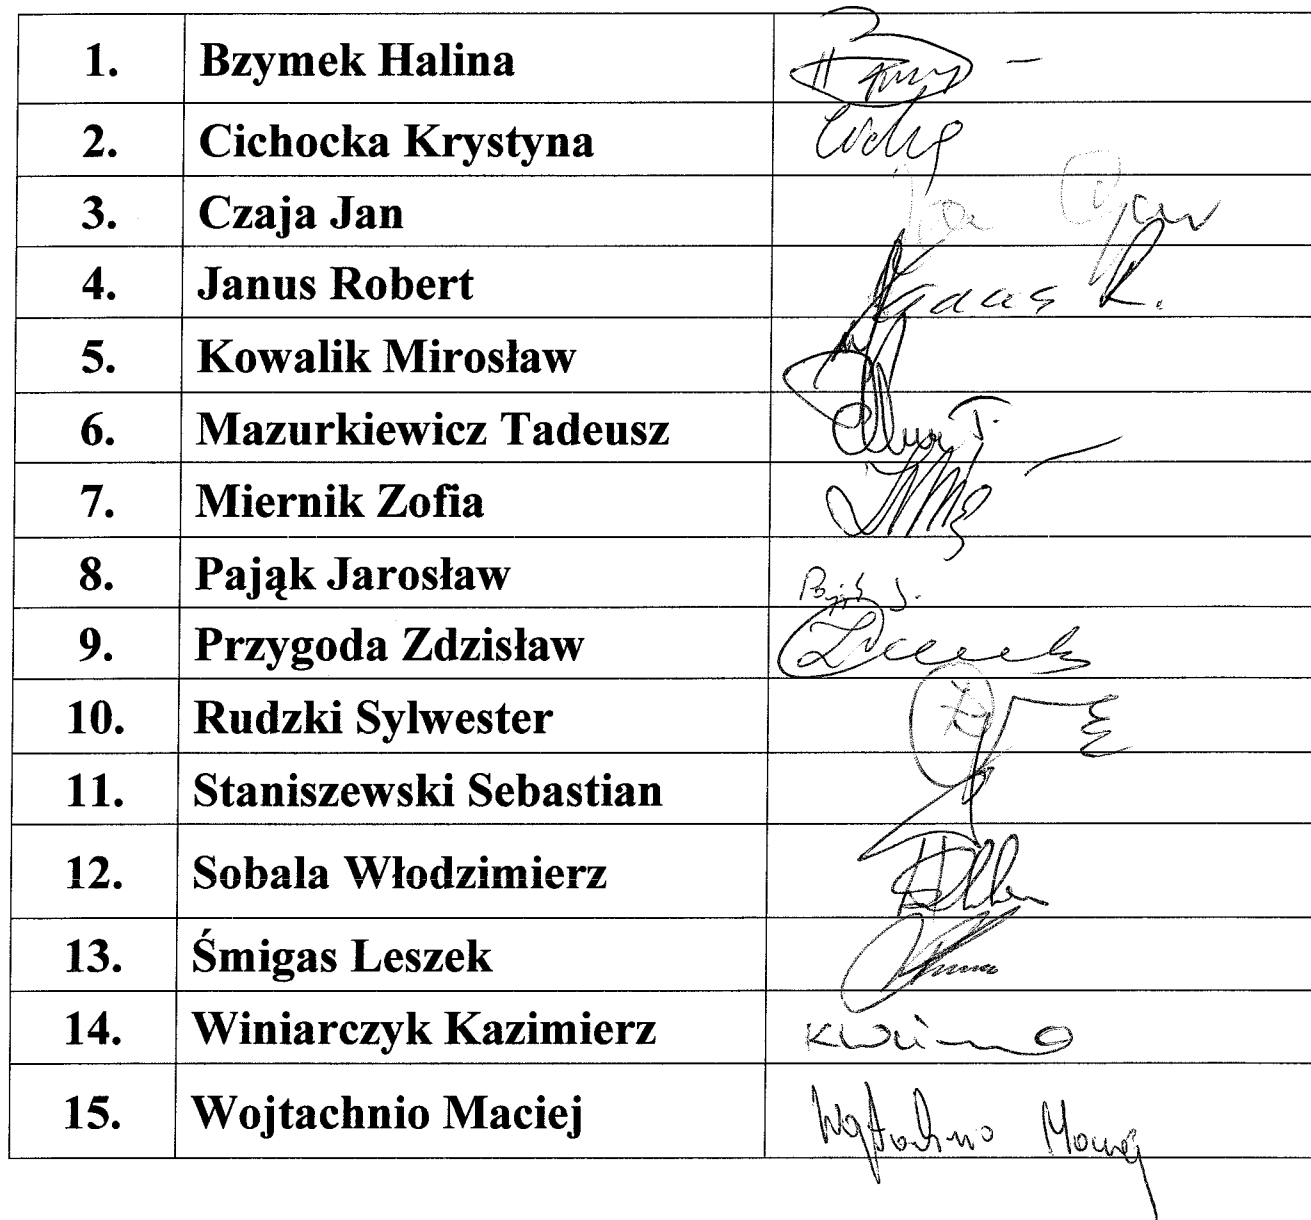 1. Bzymek Halina
2. Cichocka Krystyna
3. Czaja Jan
4. Janus Robert Janus R.
5. Kowalik Mirosław
6. Mazurkiewicz Tadeusz
7. Miernik Zofia
8. Pająk Jarosław Pająk J.
9. Przygoda Zdzisław
10. Rudzki Sylwester
11. Staniszewski Sebastian
12. Sobala Włodzimierz
13. Śmigas Leszek
14. Winiarczyk Kazimierz
15. Wojtachnio Maciej Wojtachnio Maciej